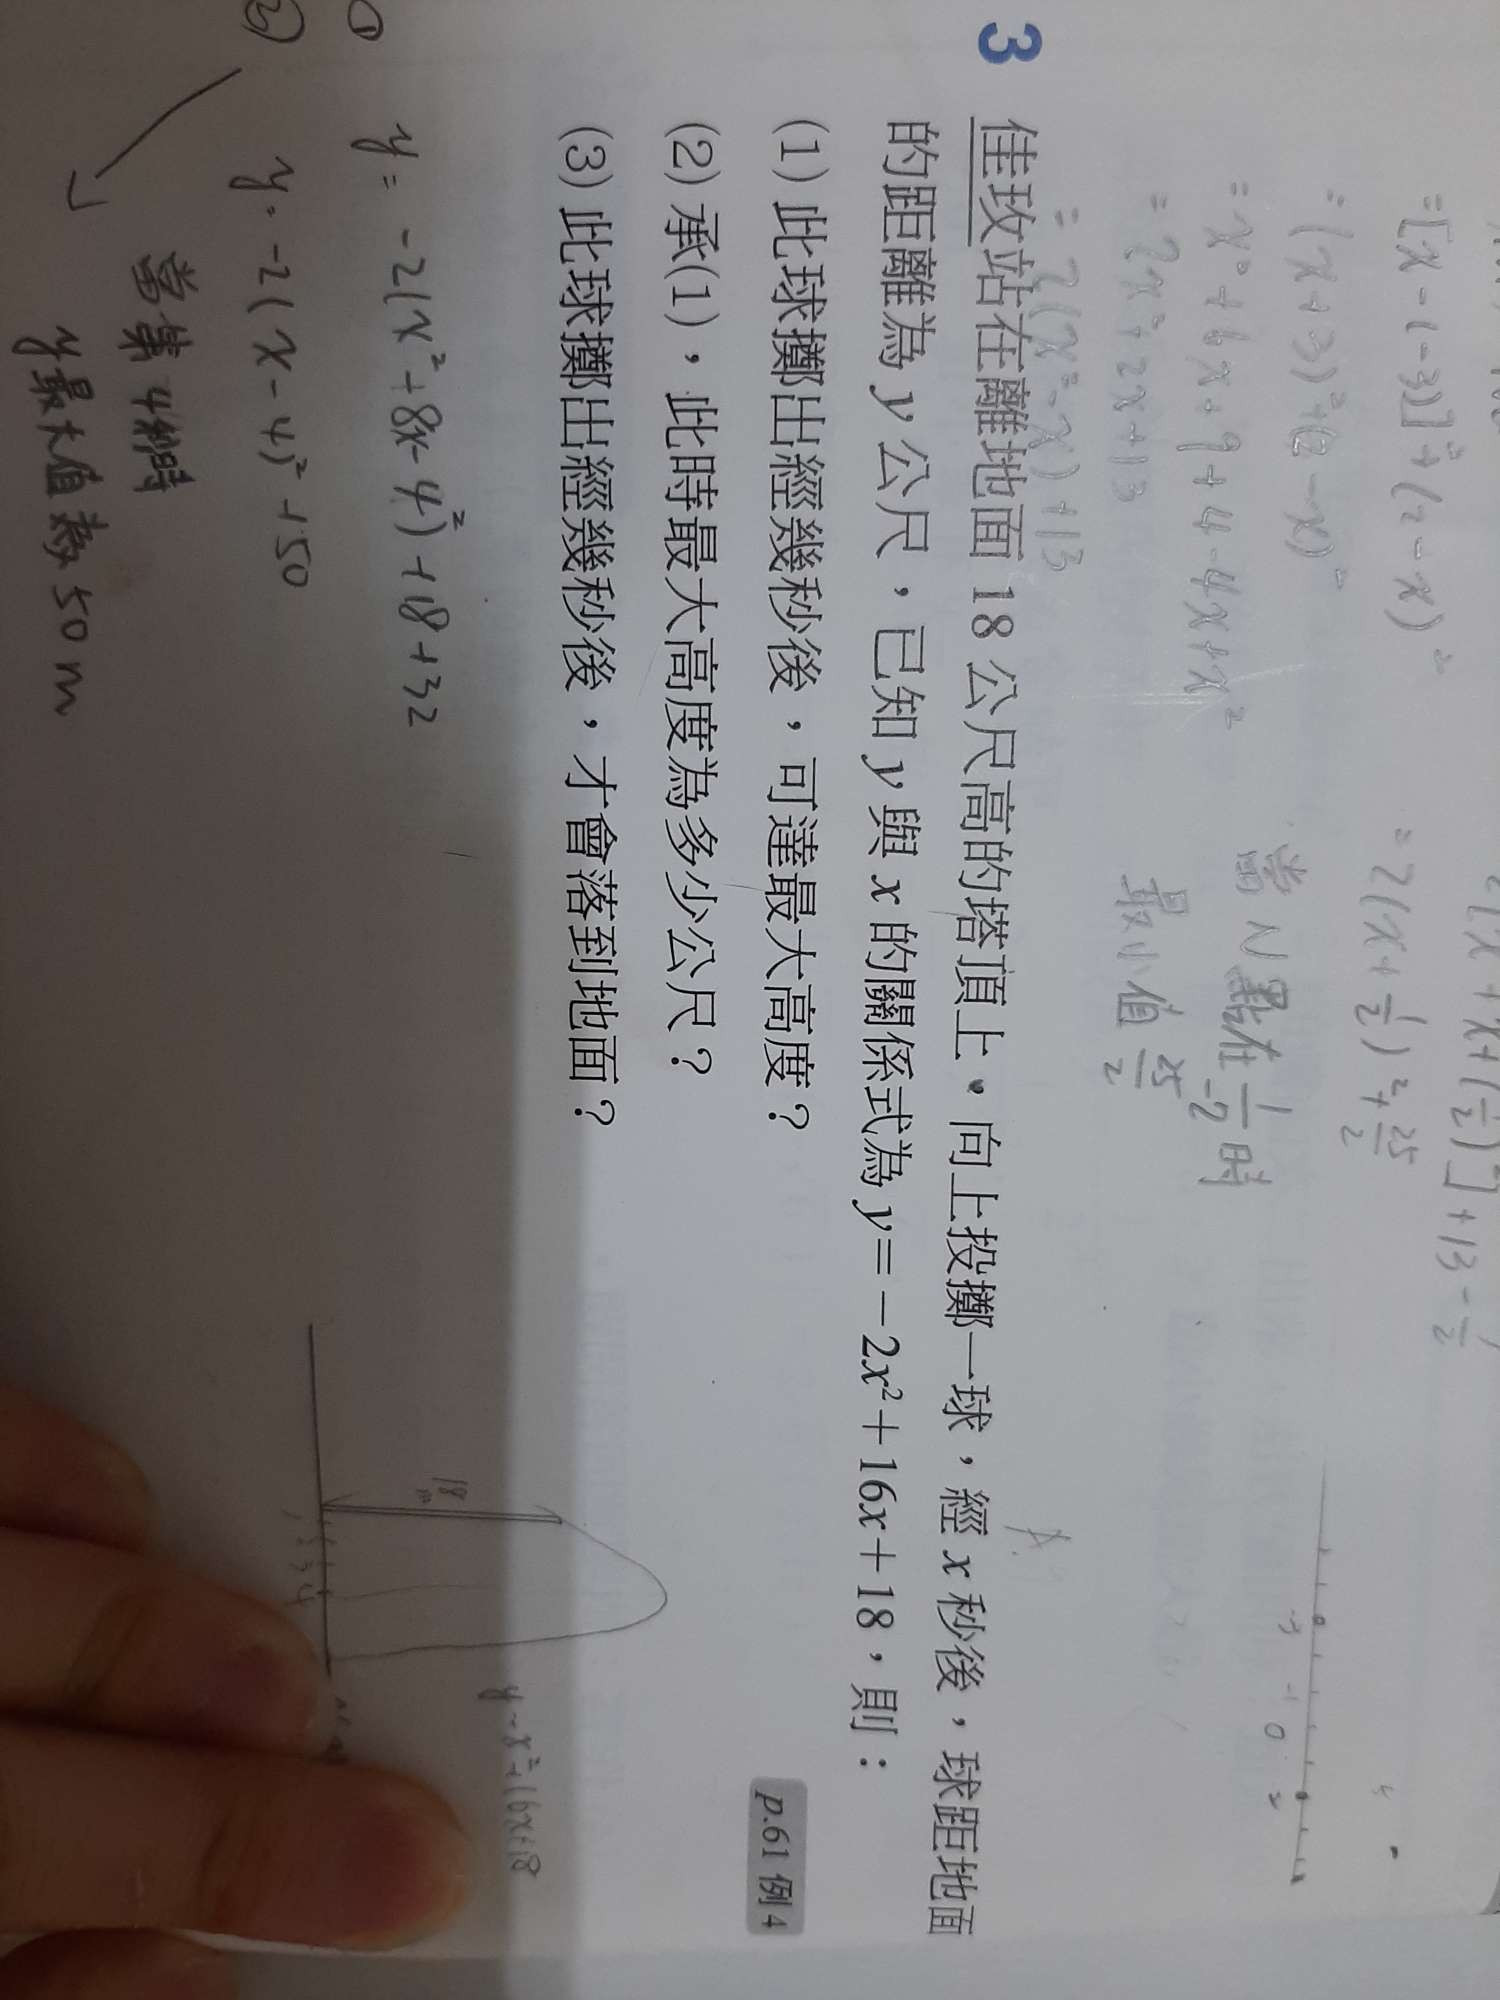 =[x-(-3)]²+(2-x)²
=(x+3)²+(2-x)²
=x²+6x+9+4-4x+x²
=2x²+2x+13
=2(x²-x)+13
=2(x+½)²+25/2
當N點在-1/2時
最小值25/2
-3 -1 0 2
3 佳玫站在離地面 18 公尺高的塔頂上,向上投擲一球,經 x 秒後,球距地面
的距離為 y 公尺,已知 y 與 x 的關係式為 y=-2x²+16x+18,則:
p.61 例 4
(1) 此球擲出經幾秒後,可達最大高度?
(2) 承(1),此時最大高度為多少公尺?
(3) 此球擲出經幾秒後,才會落到地面?
y=-2(x²+8x-4)²+18+32
y=-2(x-4)²+50
當第4秒時
y最大值為50m
18m
1 2 3 4